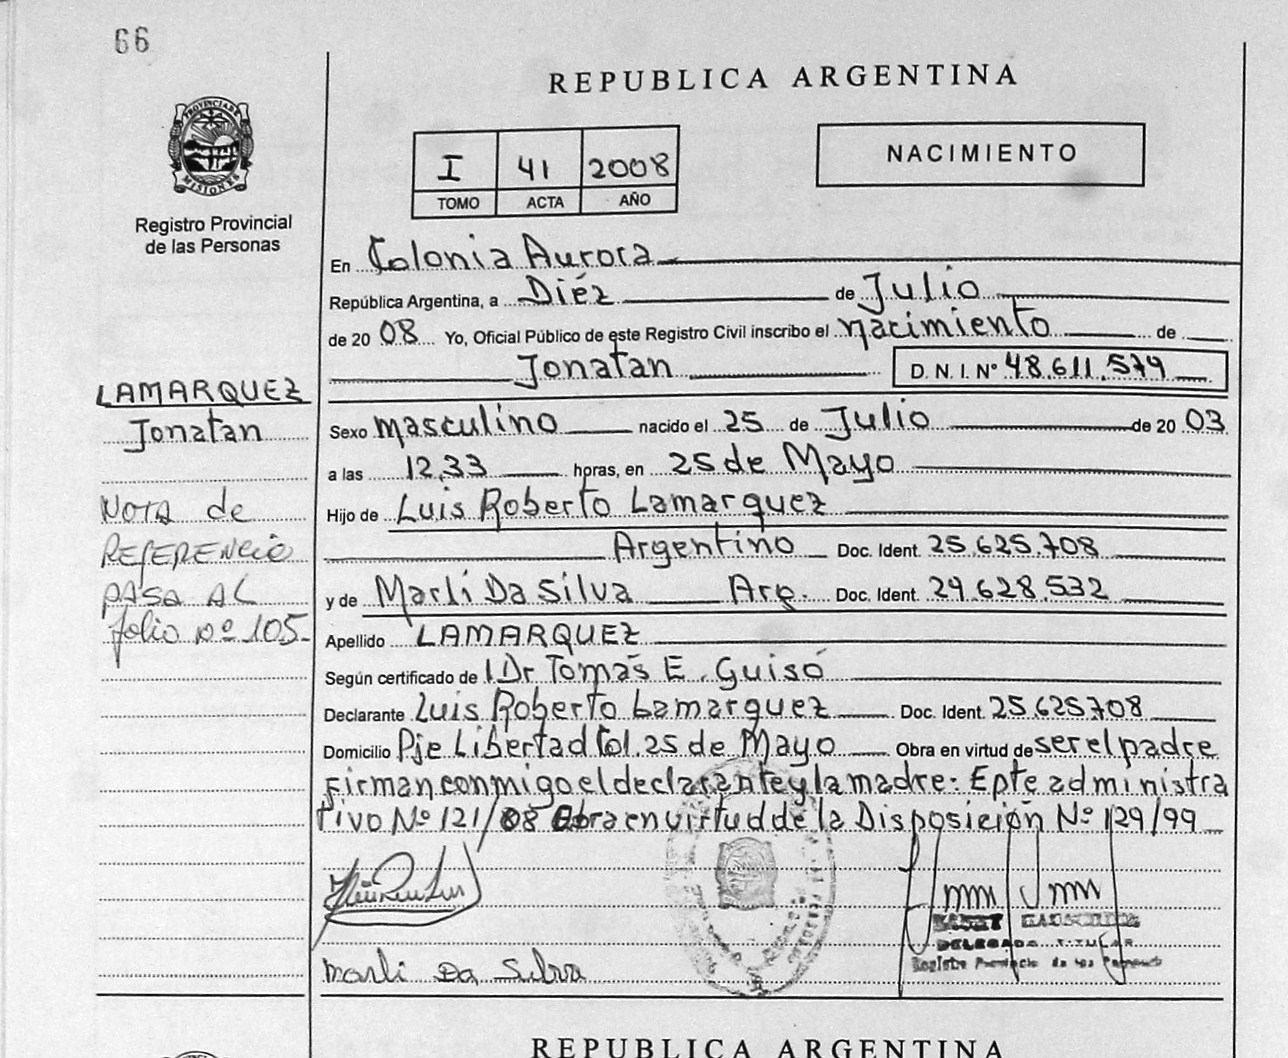 66
PROVINCIA DE
MISIONES
Registro Provincial
de las Personas
REPUBLICA ARGENTINA
I 41 2008
TOMO ACTA AÑO
NACIMIENTO
En Colonia Aurora
República Argentina, a Diéz de Julio
de 20 08 Yo, Oficial Público de este Registro Civil inscribo el nacimiento de
Jonatan D.N.I.Nº 48.611.579
LAMARQUEZ
Jonatan
Sexo masculino nacido el 25 de Julio de 20 03
a las 12,33 horas, en 25 de Mayo
Nota de
Referencia
PASA AL
folio nº 105-
Hijo de Luis Roberto Lamarquez
Argentino Doc. Ident. 25.625.708
y de Marli Da Silva Arg. Doc. Ident. 29.628.532
Apellido LAMARQUEZ
Según certificado de Dr Tomás E. Guisó
Declarante Luis Roberto Lamarquez Doc. Ident. 25.625.708
Domicilio Pje Libertad Col. 25 de Mayo Obra en virtud de ser el padre
Firman conmigo el declarante y la madre: Epte administra
tivo Nº 121/08 Obra en virtud de la Disposición Nº 129/99
Marli Da Silva
DELEGADA TITULAR
Registro Provincial de las Personas
REPUBLICA ARGENTINA